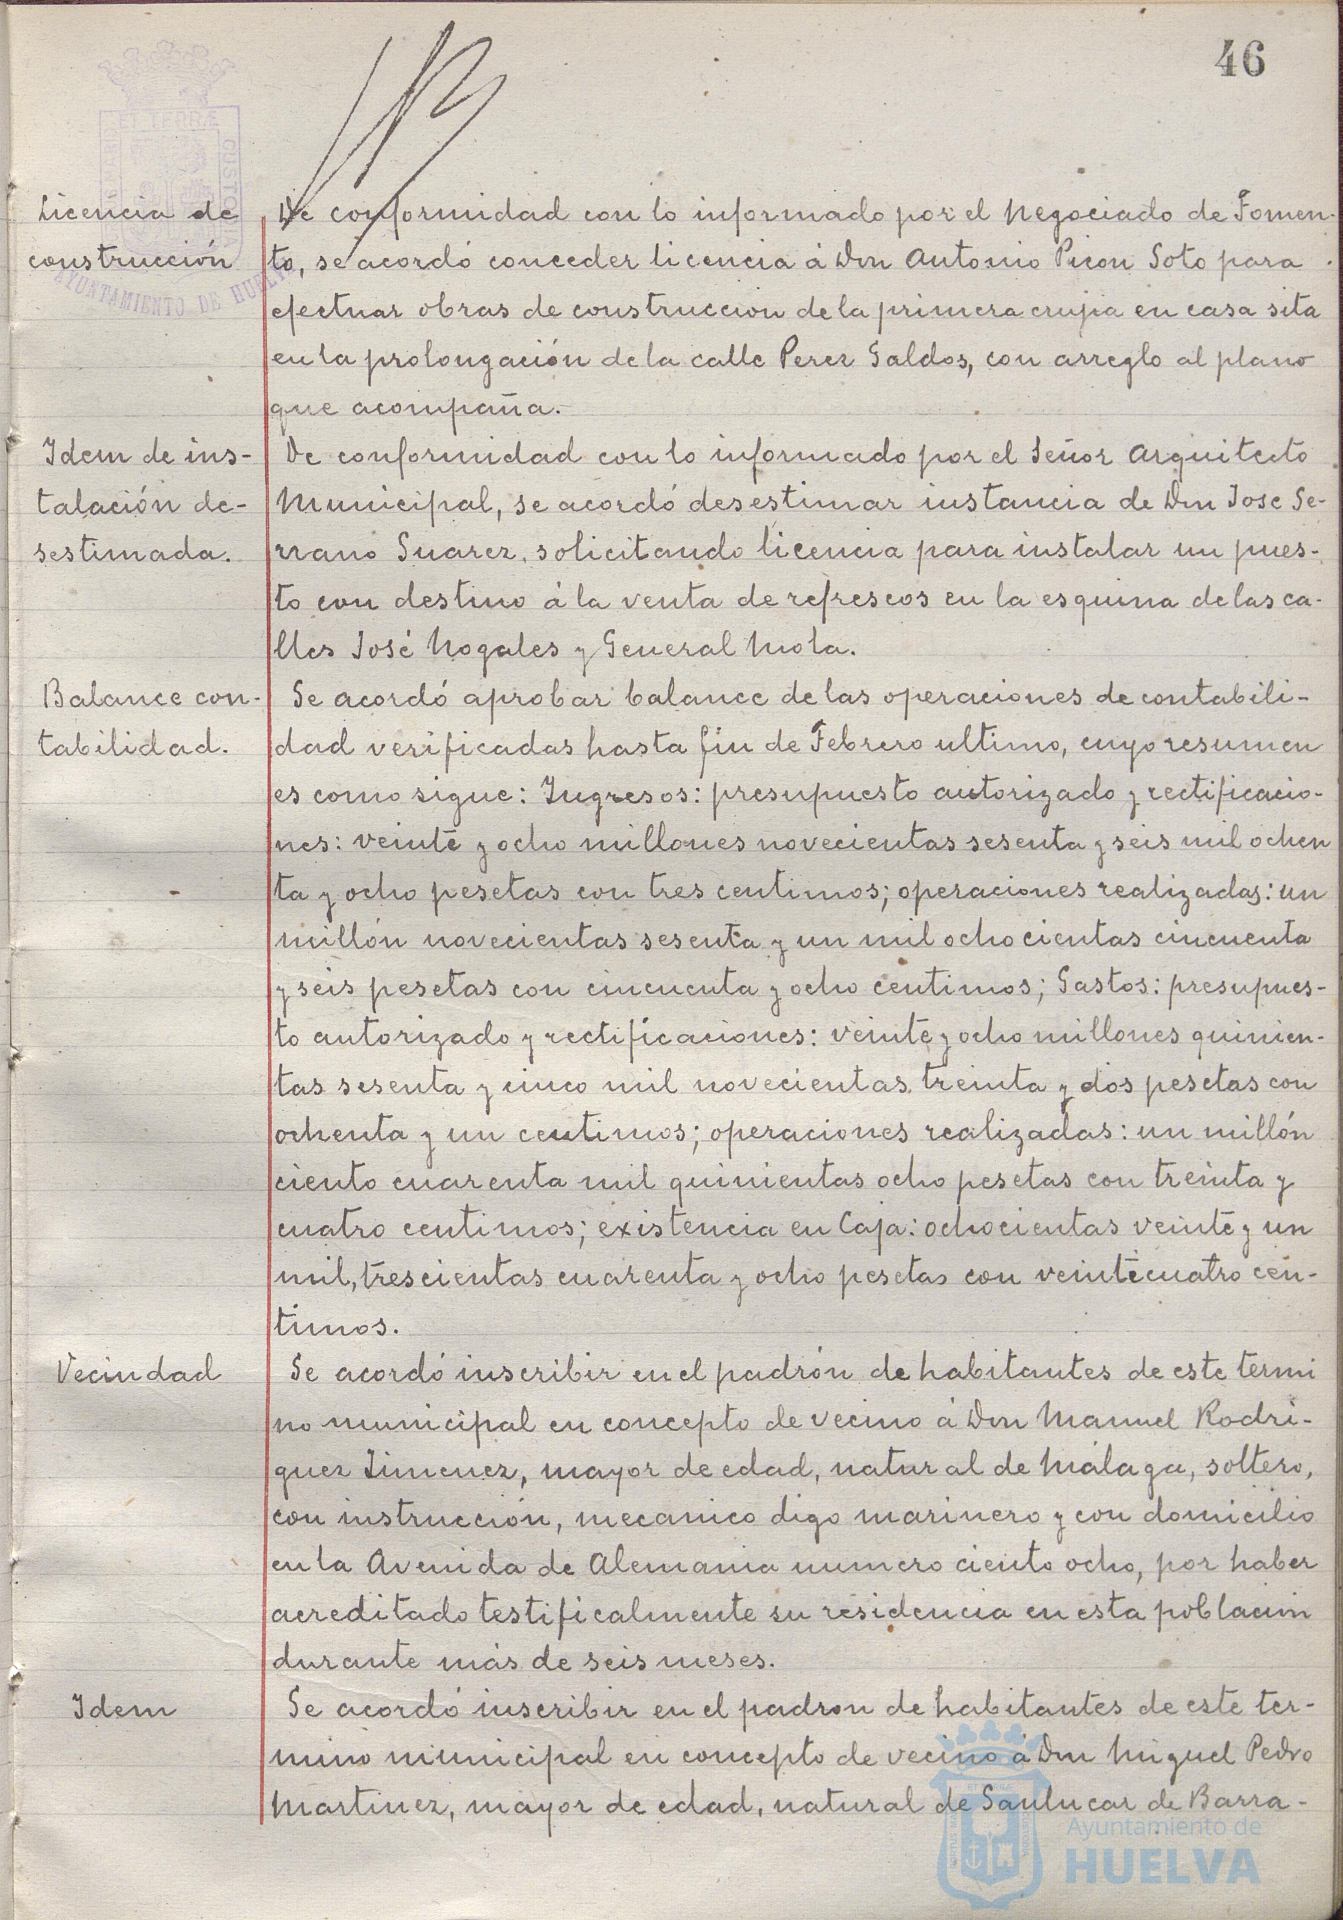 46
Licencia de
construcción
De conformidad con lo informado por el Negociado de Fomen-
to, se acordó conceder licencia á Don Antonio Picon Soto para
efectuar obras de construccion de la primera crujia en casa sita
en la prolongación de la calle Perez Galdos, con arreglo al plano
que acompaña.-
Idem de ins-
talación de-
sestimada.
De conformidad con lo informado por el Señor Arquitecto
Municipal, se acordó desestimar instancia de Don Jose Se-
rrano Suarez, solicitando licencia para instalar un pues-
to con destino á la venta de refrescos en la esquina de las ca-
lles José Nogales y General Mola.
Balance con-
tabilidad.
Se acordó aprobar balance de las operaciones de contabili-
dad verificadas hasta fin de Febrero ultimo, cuyo resumen
es como sigue: Ingresos: presupuesto autorizado y rectificacio-
nes: veinte y ocho millones novecientas sesenta y seis mil ochen
ta y ocho pesetas con tres centimos; operaciones realizadas: un
millón novecientas sesenta y un mil ochocientas cincuenta
y seis pesetas con cincuenta y ocho centimos; Gastos: presupues-
to autorizado y rectificaciones: veinte y ocho millones quinien-
tas sesenta y cinco mil novecientas treinta y dos pesetas con
ochenta y un centimos; operaciones realizadas: un millón
ciento cuarenta mil quinientas ocho pesetas con treinta y
cuatro centimos; existencia en Caja: ochocientas veinte y un
mil, trescientas cuarenta y ocho pesetas con veintecuatro cen-
timos.
Vecindad
Se acordó inscribir en el padrón de habitantes de este termi
no municipal en concepto de vecino á Don Manuel Rodri-
guez Jimenez, mayor de edad, natural de Málaga, soltero,
con instrucción, mecanico digo marinero y con domicilio
en la Avenida de Alemania numero ciento ocho, por haber
acreditado testificalmente su residencia en esta poblacion
durante más de seis meses.
Idem
Se acordó inscribir en el padron de habitantes de este ter-
mino municipal en concepto de vecino á Don Miguel Pedro
Martinez, mayor de edad, natural de Sanlucar de Barra-
AYUNTAMIENTO DE HUELVA
Ayuntamiento de
HUELVA